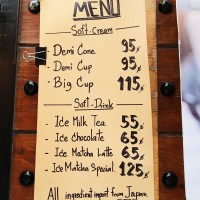 MENU
Soft-Cream
- Demi Cone. 95.-
- Demi Cup 95.-
- Big Cup 115.-
Soft-Drink
- Ice Milk Tea. 55.-
- Ice chocolate 65.-
- Ice Matcha Latte 65.-
- Ice Matcha Special. 125.-
All ingredient import from Japan